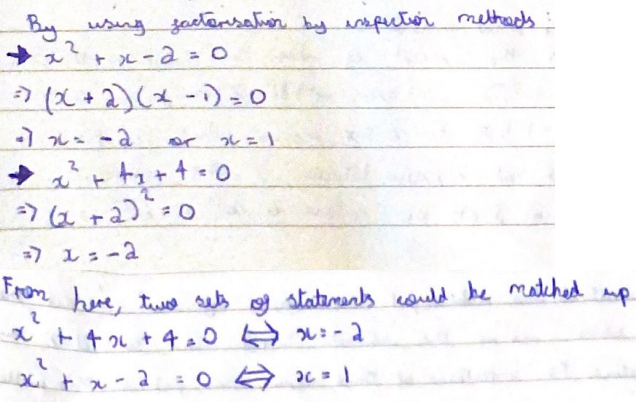 By using factorisation by inspection methods:
→ x² + x - 2 = 0
=> (x + 2)(x - 1) = 0
=> x = -2 or x = 1
→ x² + 4x + 4 = 0
=> (x + 2)² = 0
=> x = -2
From here, two sets of statements could be matched up
x² + 4x + 4 = 0 ⟺ x = -2
x² + x - 2 = 0 ⟺ x = 1